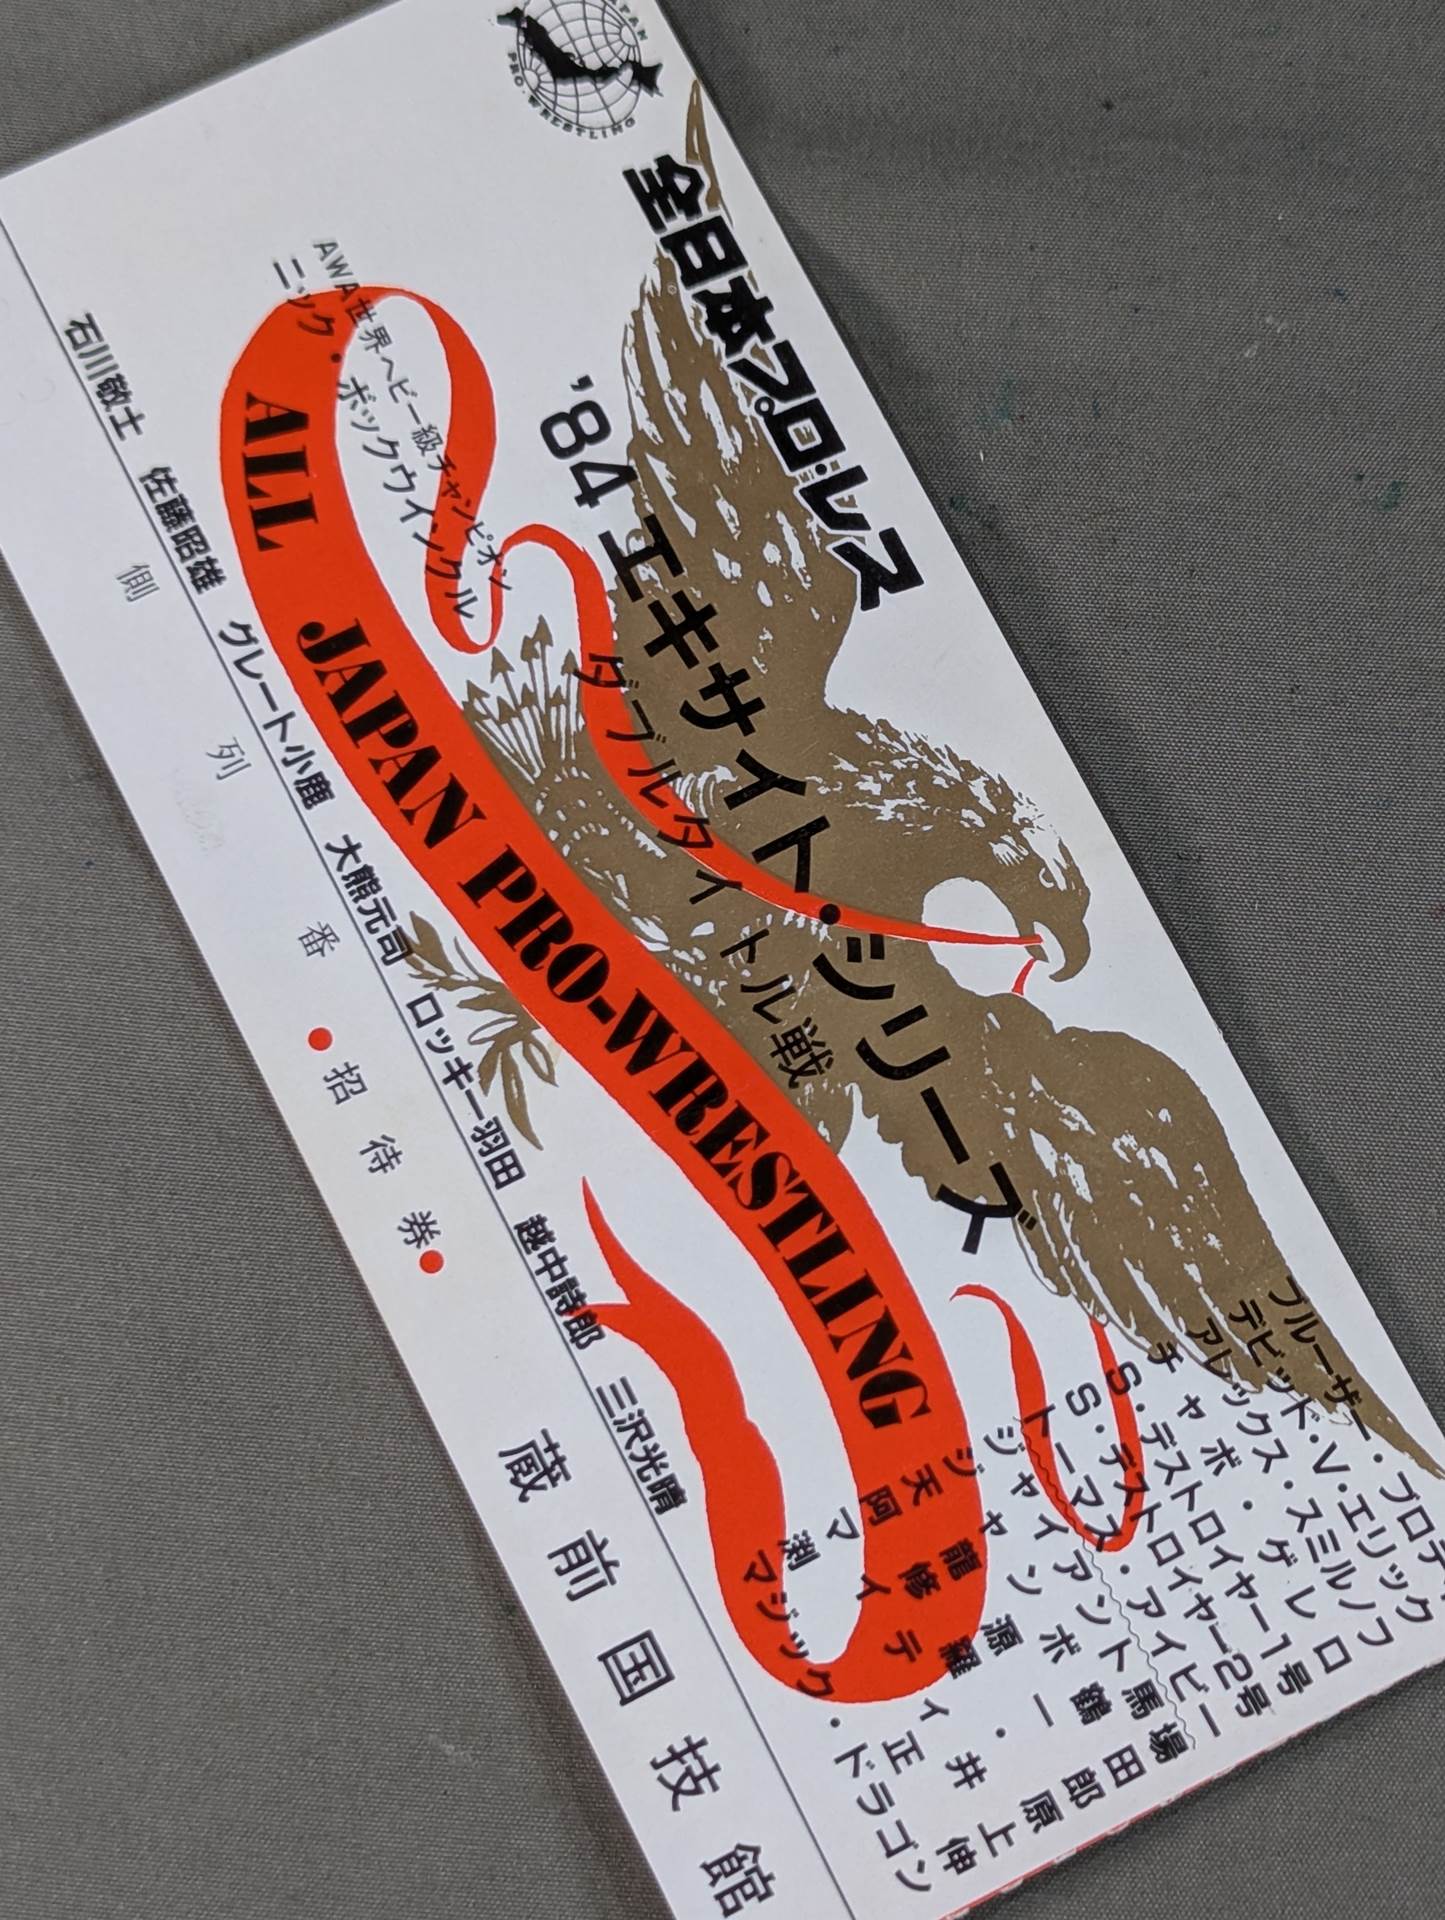 PRO-WRESTLING
全日本プロレス
'84 エキサイト・シリーズ
ダブルタイトル戦
AWA世界ヘビー級チャンピオン
ニック・ボックウインクル
ALL JAPAN PRO-WRESTLING
デビッド・V・エリック
アレックス・スミルノフ
チャボ・ゲレロ
S・デストロイヤー1号
S・デストロイヤー2号
トーマス・アイビー
ジャイアント馬場
ジャンボ鶴田
天龍源一郎
阿修羅・原
マイティ井上
渕正伸
マジック・ドラゴン
石川敬士 佐藤昭雄 グレート小鹿 大熊元司 ロッキー羽田 越中詩郎 三沢光晴
側 列 番
●招待券●
蔵前国技館